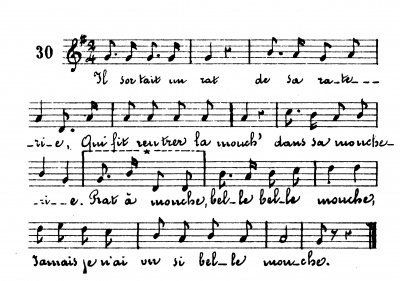 30
Il sortait un rat de sa rate---
-ri-e, Qui fit rentrer la mouch' dans sa mouche-
-ri--e. Prat à mouche, bel-le bel-le mouche,
Jamais je n'ai vu si bel-le mou-che.